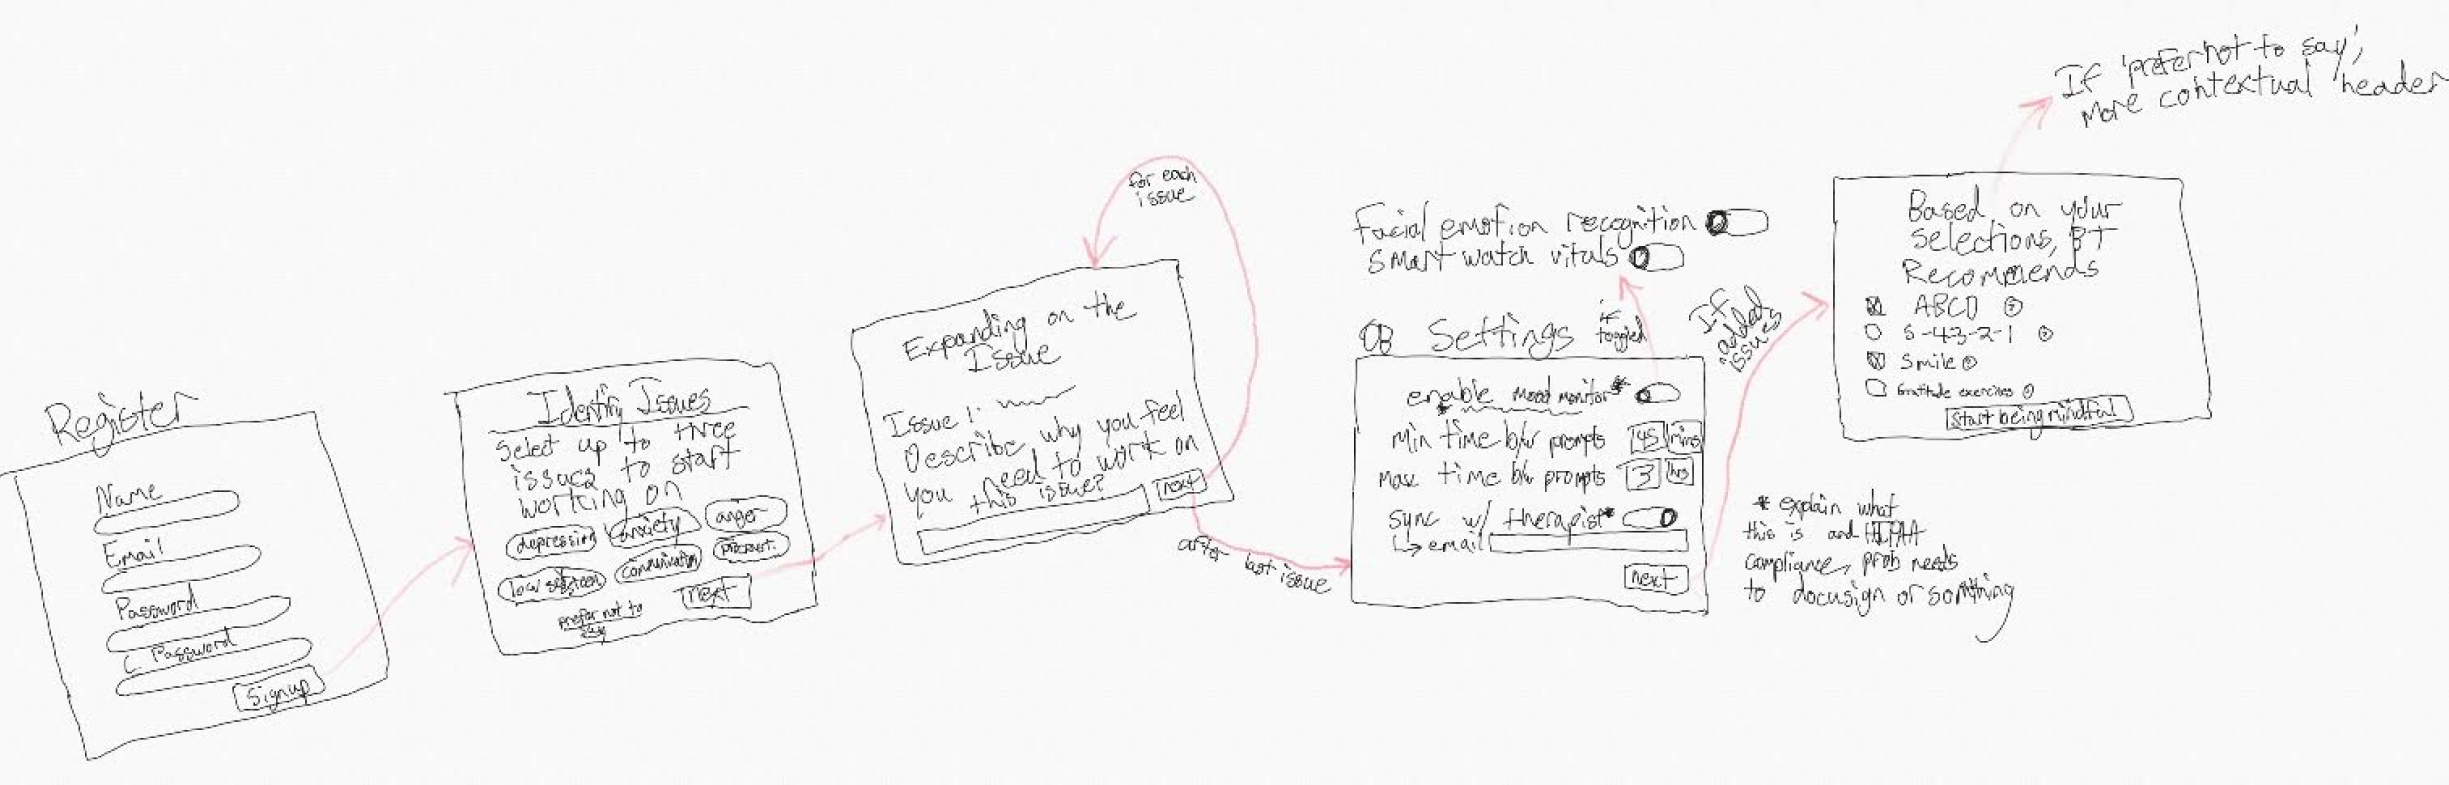 Register
Name
Email
Password
C. Password
Signup
Identify Issues
Select up to three
issues to start
working on
depression
anxiety
anger
low selfesteem
communication
procrast.
prefer not to
say
next
for each
issue
Expanding on the
Issue
Issue 1:
Describe why you feel
you need to work on
this issue?
next
after last issue
Facial emotion recognition
Smart watch vitals
if
toggled
OB Settings
enable mood monitor*
min time b/w prompts 45 mins
max time b/w prompts 3 hrs
sync w/ therapist*
email
next
If
added
issues
* explain what
this is and HIPAA
compliance, prob needs
to docusign or something
If 'prefer not to say',
more contextual header
Based on your
selections, BT
Recommends
ABCD
5-4-3-2-1
Smile
Gratitude exercises
Start being mindful